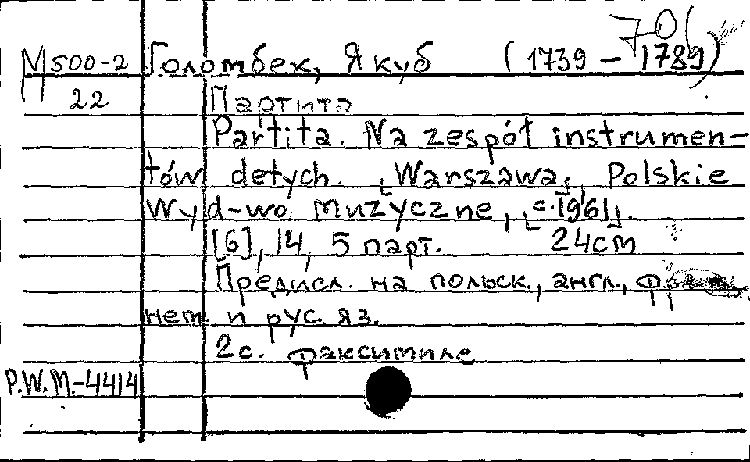 М500-2 Голомбек, Якуб (1739 – 1789)
22 Партита
Partita. Na zespół instrumen-
tów dętych. [Warszawa], Polskie
Wyd-wo muzyczne, [c.1961].
[6], 14, 5 парт. 24см
Предисл. на польск., англ.,
нем и рус. яз.
2с. факсимиле
P.W.M.-4414